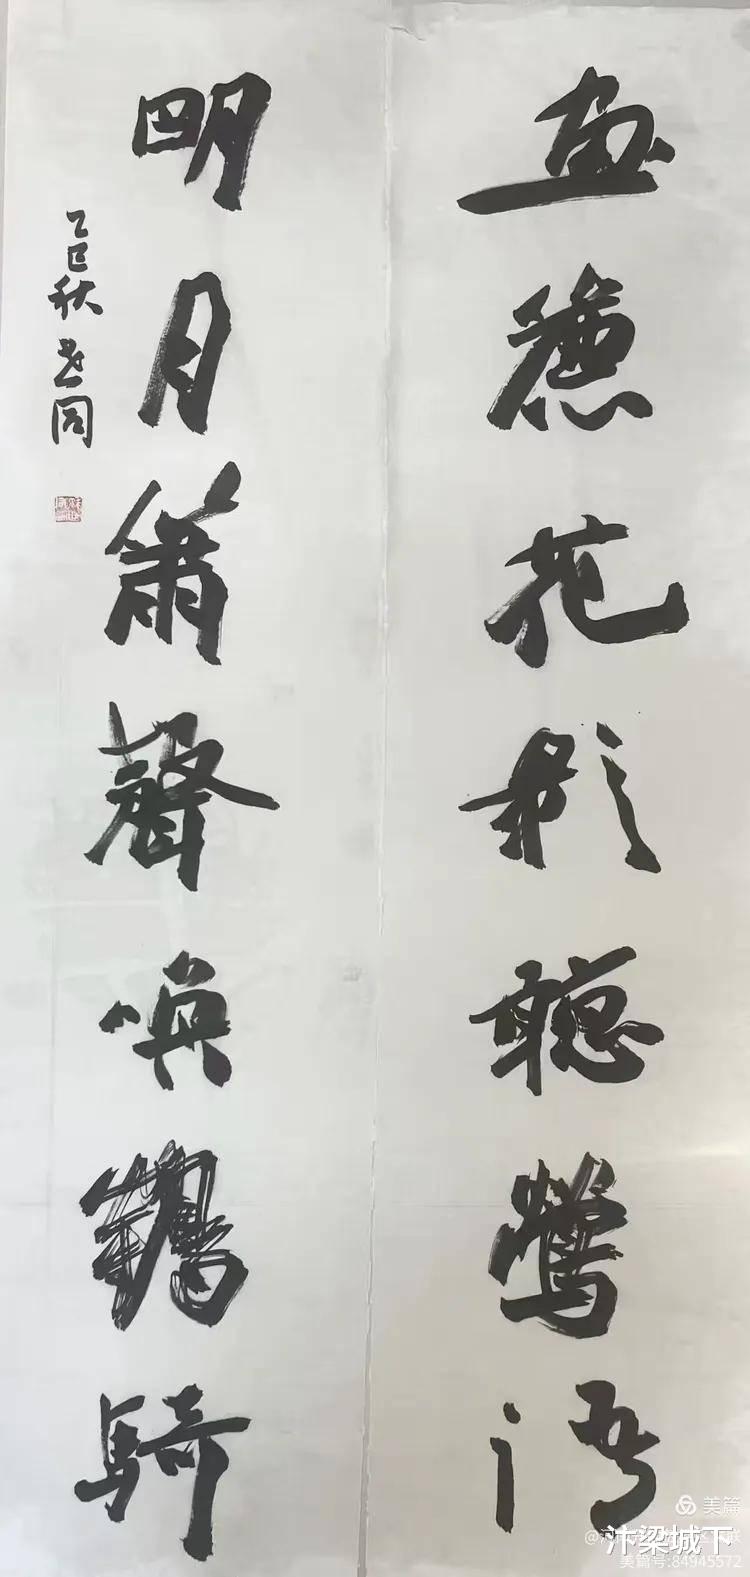 画窗花影聽鶯語
明月簫聲喚鶴騎
乙巳秋
美篇
汴梁城下
美篇号:84945572